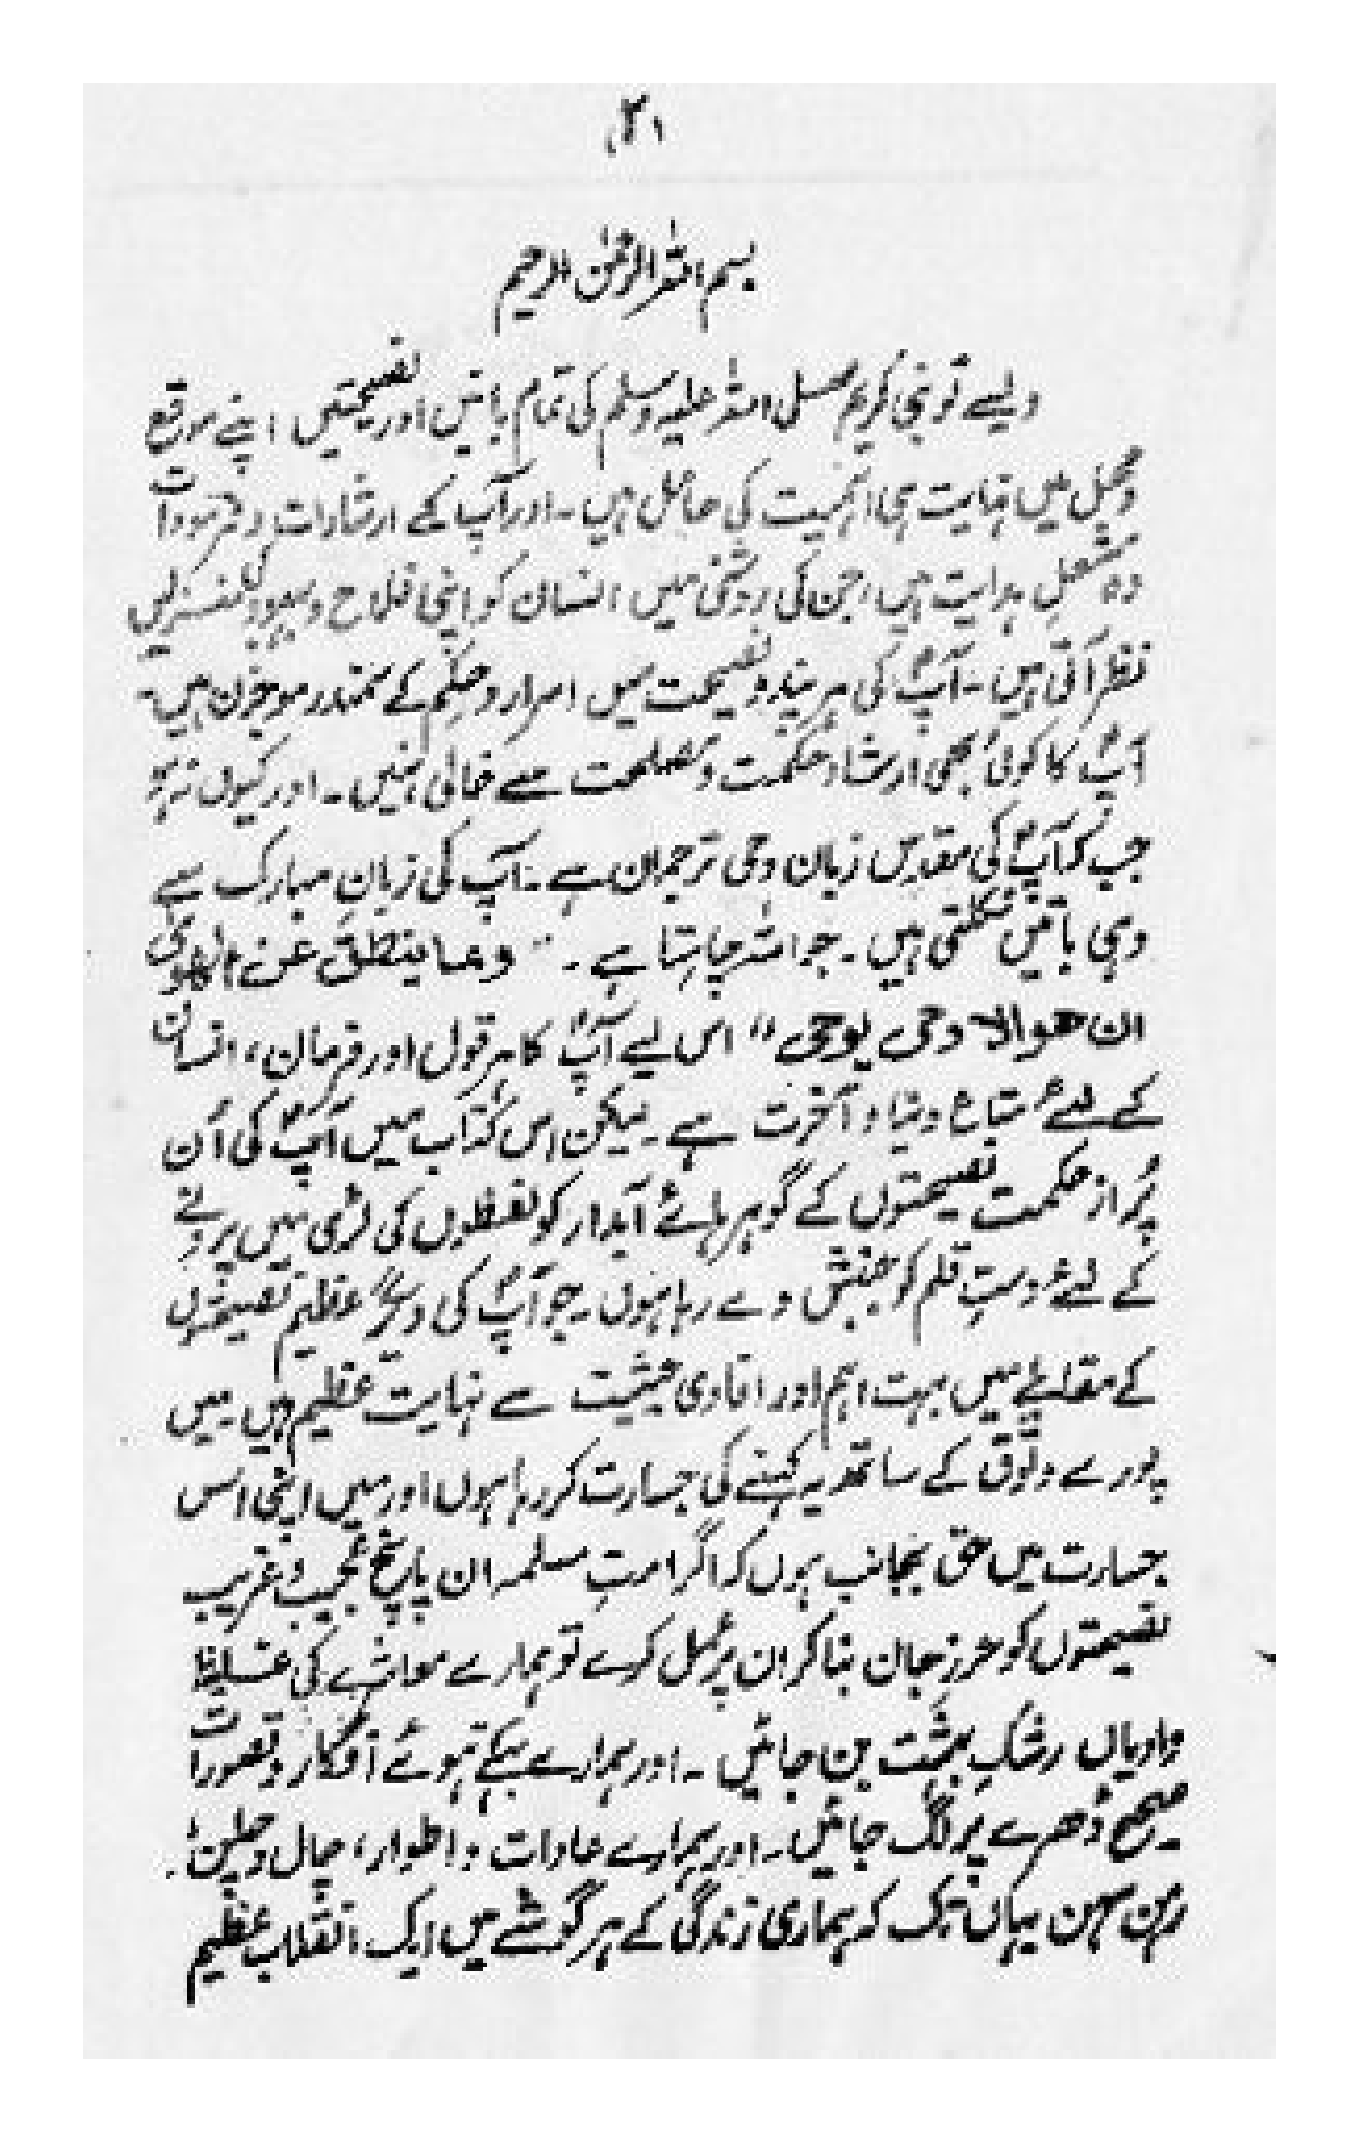 ۳۱
بسم اللہ الرحمٰن الرحیم
ویسے تو نبی کریم صلی اللہ علیہ وسلم کی تمام باتیں اور نصیحتیں اپنے موقع
و محل میں نہایت ہی اہمیت کی حامل ہیں۔ اور آپ کے ارشادات و فرمودات
وہ مشعلِ ہدایت ہیں، جن کی روشنی میں انسان کو اپنی فلاح و بہبود کی منزلیں
نظر آتی ہیں۔ آپؐ کی ہر پند و نصیحت میں اسرار و حِکم کے سمندر موجزن ہیں۔
آپؐ کا کوئی بھی ارشاد حکمت و مصلحت سے خالی نہیں۔ اور کیوں نہ ہو
جب کہ آپؐ کی مقدس زبان وحی ترجمان ہے۔ آپ کی زبانِ مبارک سے
وہی باتیں نکلتی ہیں۔ جو اللہ چاہتا ہے۔ "وما ینطق عن الھویٰ
ان ھو الا وحی یوحی" اس لیے آپؐ کا ہر قول اور فرمان، انسان
کے لئے متاع دنیا و آخرت ہے۔ لیکن اس کتاب میں آپؐ کی اُن
پُر از حکمت نصیحتوں کے گوہر ہائے آبدار کو لفظوں کی لڑی میں پرونے
کے لئے دستِ قلم کو جنبش دے رہا ہوں۔ جو آپؐ کی دیگر عظیم نصیحتوں
کے مقابلے میں بہت اہم اور افادی حیثیت سے نہایت عظیم ہیں۔ میں
پورے وثوق کے ساتھ یہ کہنے کی جسارت کر رہا ہوں اور میں اپنی اس
جسارت میں حق بجانب ہوں کہ اگر امتِ مسلمہ ان پانچ عجیب و غریب
نصیحتوں کو حرزِ جان بنا کر ان پر عمل کرے تو ہمارے معاشرے کی غلیظ
وادیاں رشکِ بہشت بن جائیں۔ اور ہمارے بہکے ہوئے افکار و تصورات
صحیح ڈھرے پر لگ جائیں۔ اور ہمارے عادات و اطوار، چال و چلن،
رہن سہن یہاں تک کہ ہماری زندگی کے ہر گوشے میں ایک انقلاب عظیم